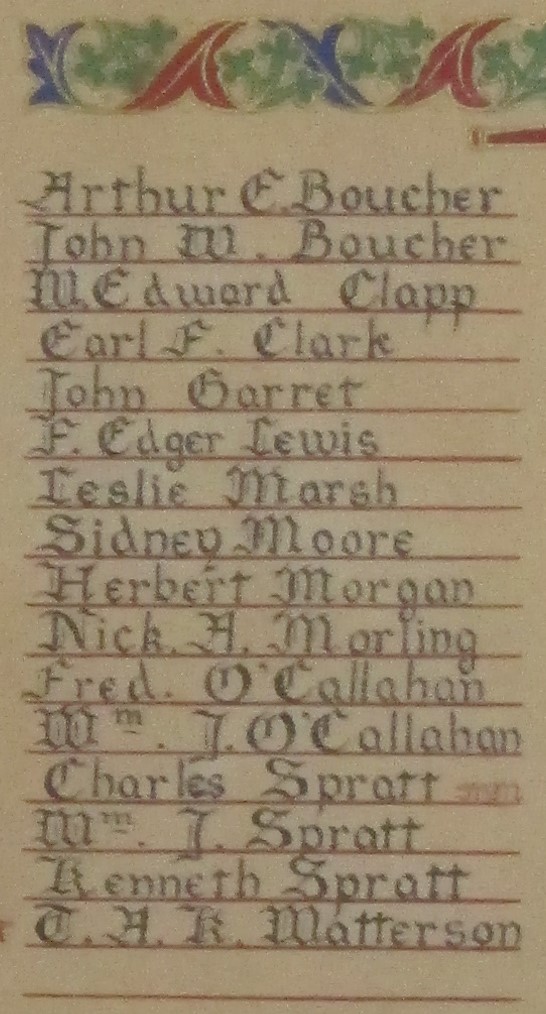 Arthur E. Boucher
John W. Boucher
W. Edward Clapp
Earl F. Clark
John Garret
F. Edger Lewis
Leslie Marsh
Sidney Moore
Herbert Morgan
Nick. A. Morling
Fred. O'Callahan
Wm. J. O'Callahan
Charles Spratt mm
Wm. J. Spratt
Kenneth Spratt
T. A. K. Watterson